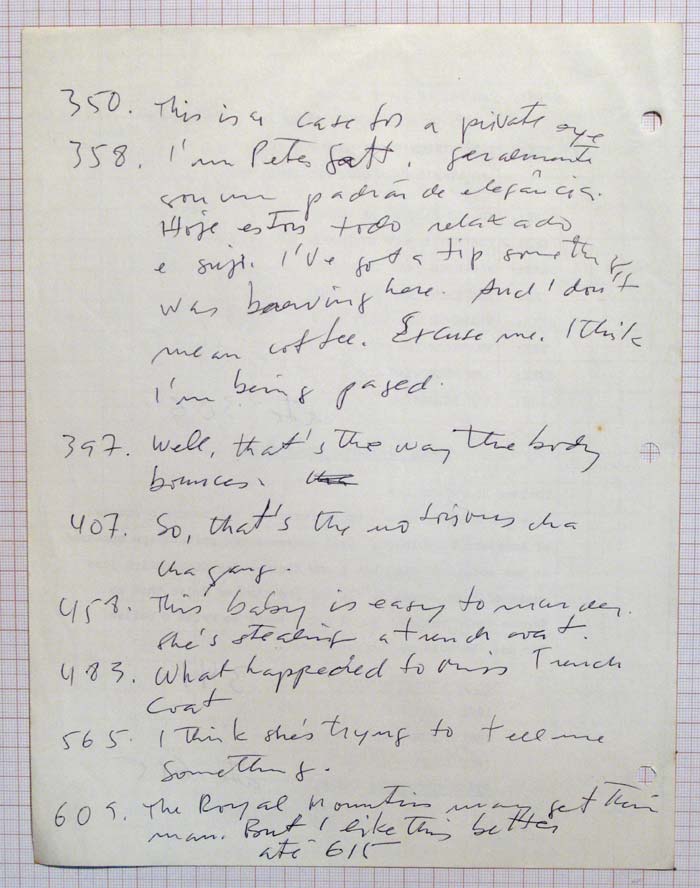 350. This is a case for a private eye
358. I'm Peter Gatt. Geralmente
sou um padrão de elegância.
Hoje estou todo relaxado
e sujo. I've got a tip something
was brewing here. And I don't
mean coffee. Excuse me. I think
I'm being paged.
397. Well, that's the way the body
bounces.
407. So, that's the notorious cha
cha gang.
458. This baby is easy to murder.
She's stealing a trench coat.
483. What happened to Miss Trench
Coat
565. I think she's trying to tell me
something.
609. The Royal Mounties may get their
man. But I like this better
até 615